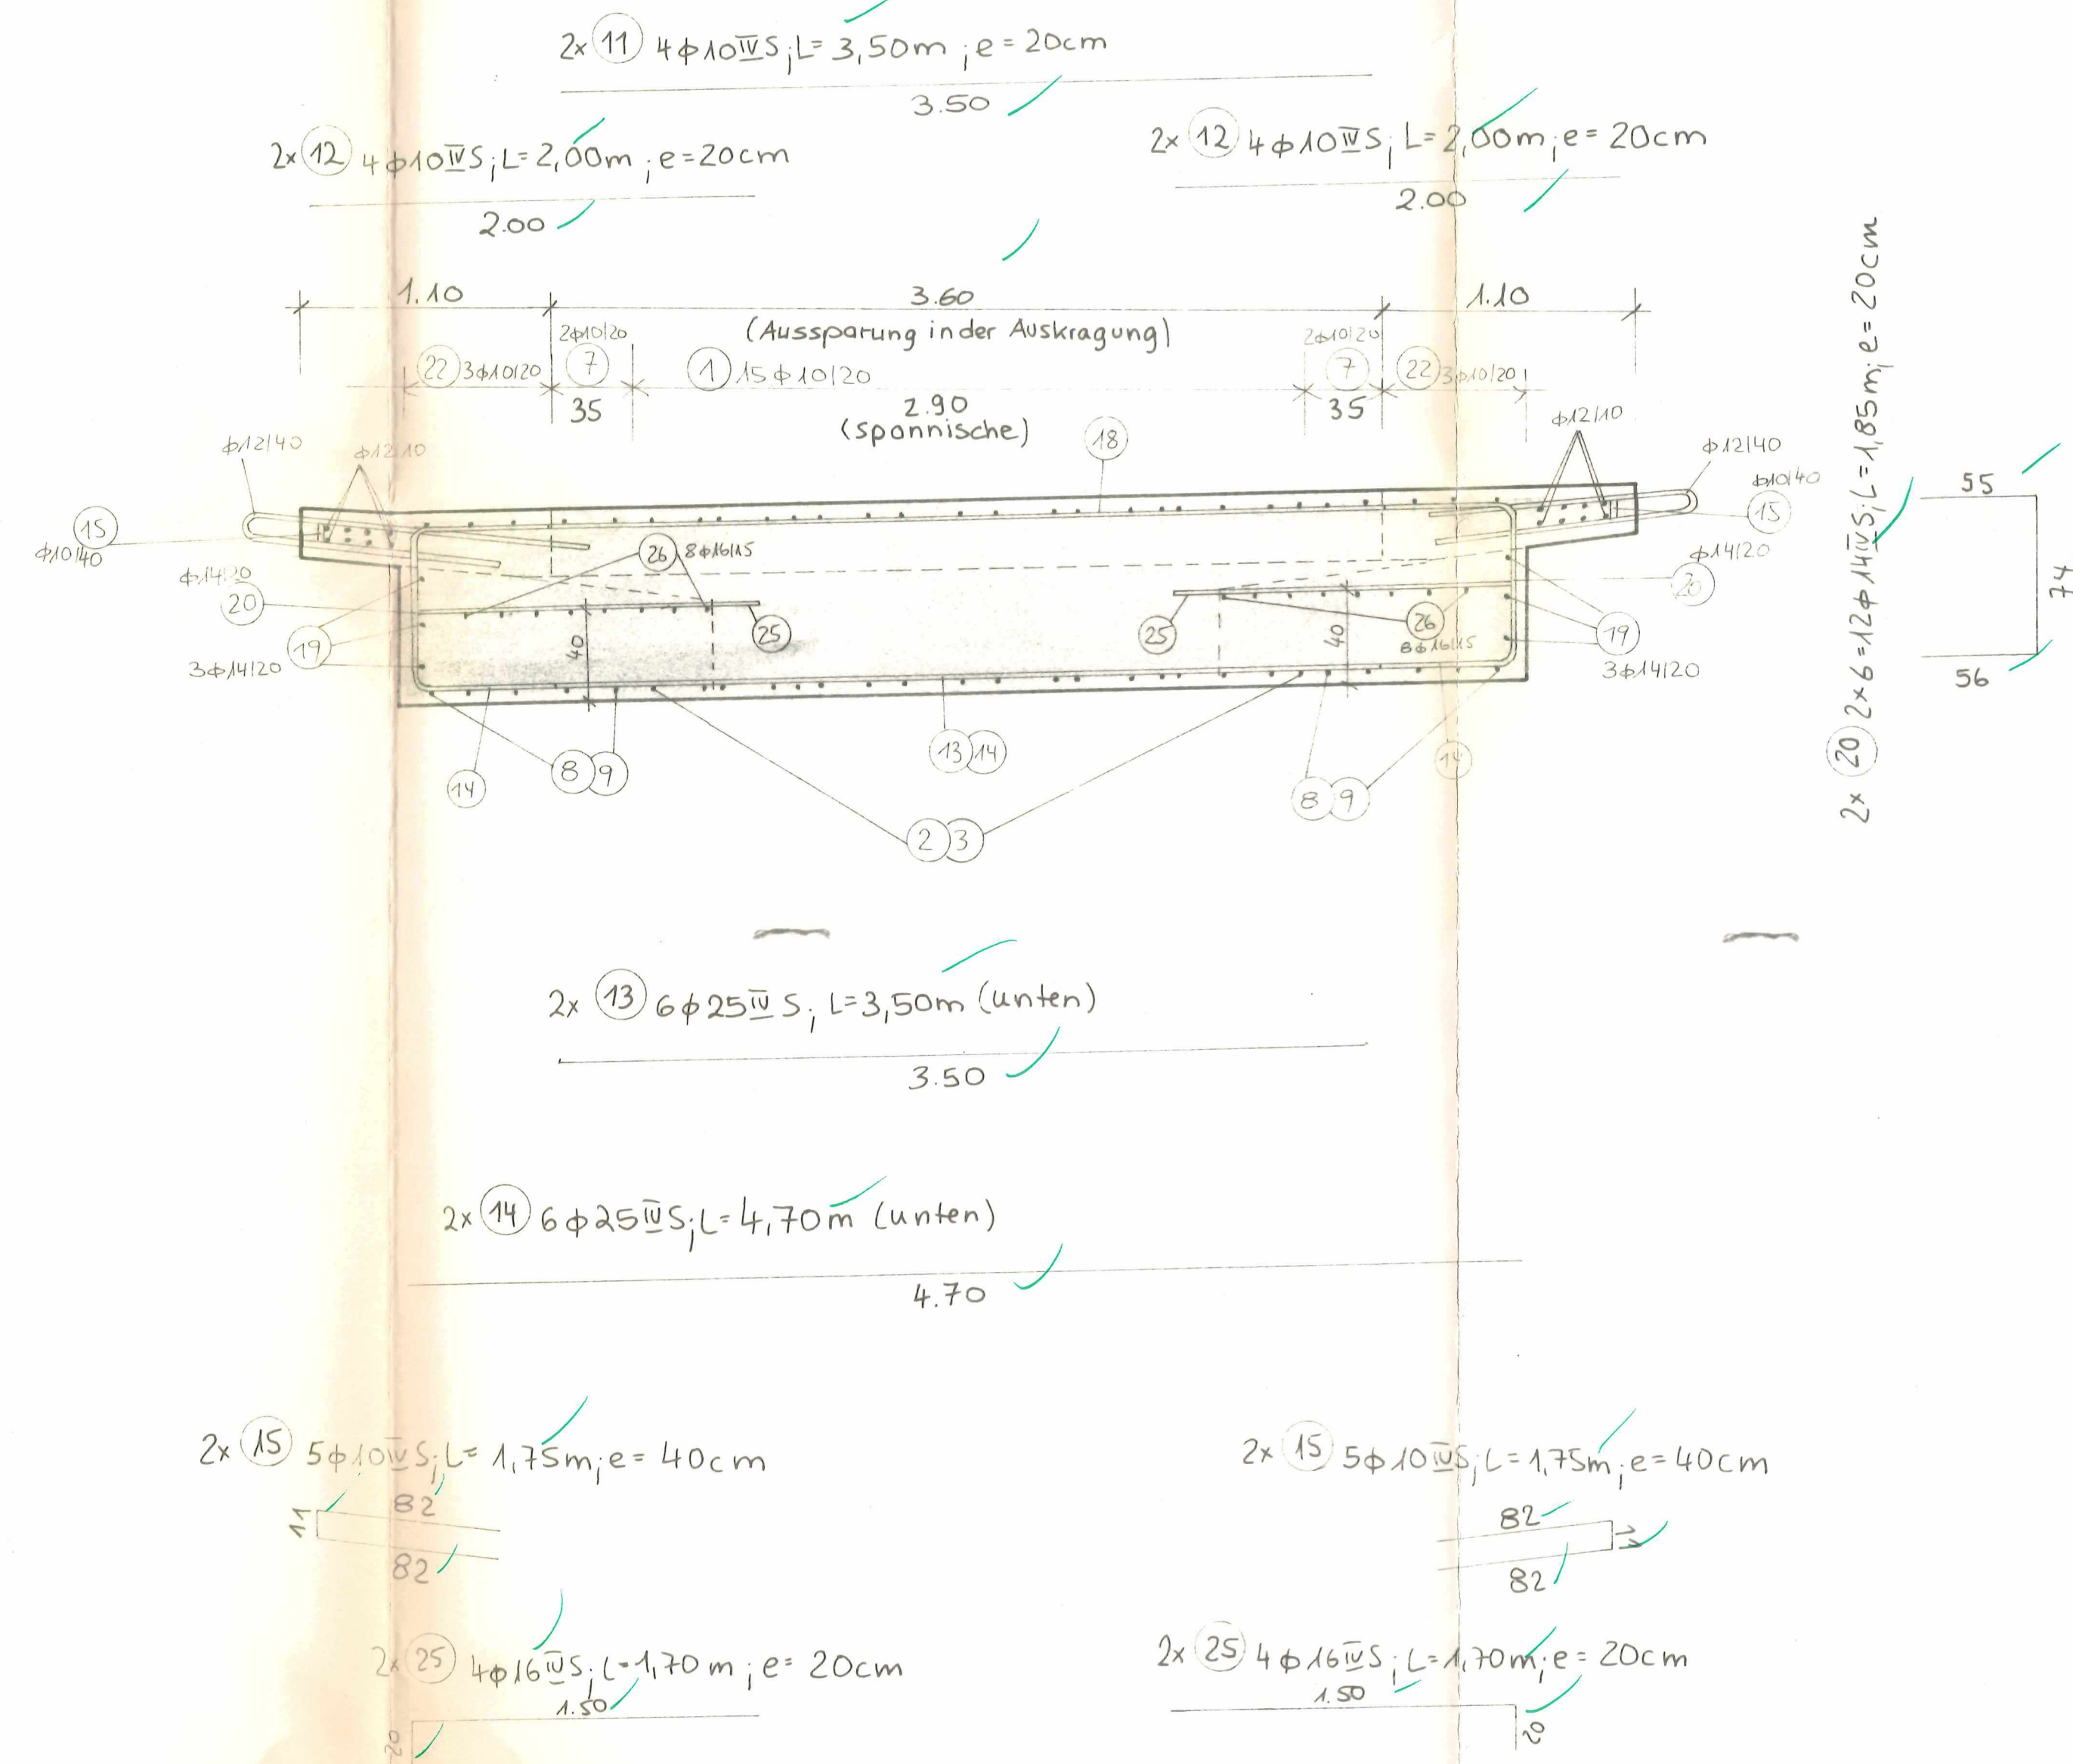 2x 11 4ϕ10IVS; L= 3,50m ; e= 20cm
3.50
2x 12 4ϕ10IVS; L= 2,00m ; e= 20cm
2.00
2x 12 4ϕ10IVS; L= 2,00m; e= 20cm
2.00
1.10 3.60 1.10
(Aussparung in der Auskragung)
2ϕ10/20 2ϕ10/20
22 3ϕ10/20 7 1 15ϕ10/20 7 22 3ϕ10/20
35 2.90 35
(spannische)
18
ϕ12/40 ϕ12/10 ϕ12/10 ϕ12/40
15 ϕ10/40
ϕ10/40 15
ϕ14/20 ϕ14/20
20 20
26 8ϕ16/15
25 25
26
8ϕ16/15
40 40
19 19
3ϕ14/20 3ϕ14/20
14 8 9 13 14 8 9 14
2 3
2x 20 2x6=12ϕ14IVS; L=1,85m; e=20cm
55
74
56
2x 13 6ϕ25IVS; L=3,50m (unten)
3.50
2x 14 6ϕ25IVS; L= 4,70m (unten)
4.70
2x 15 5ϕ10IVS; L= 1,75m; e= 40cm
11 82
82
2x 15 5ϕ10IVS; L=1,75m; e= 40cm
82 11
82
2x 25 4ϕ16IVS; L=1,70m ; e= 20cm
1.50
20
2x 25 4ϕ16IVS; L=1,70m; e= 20cm
1.50
20